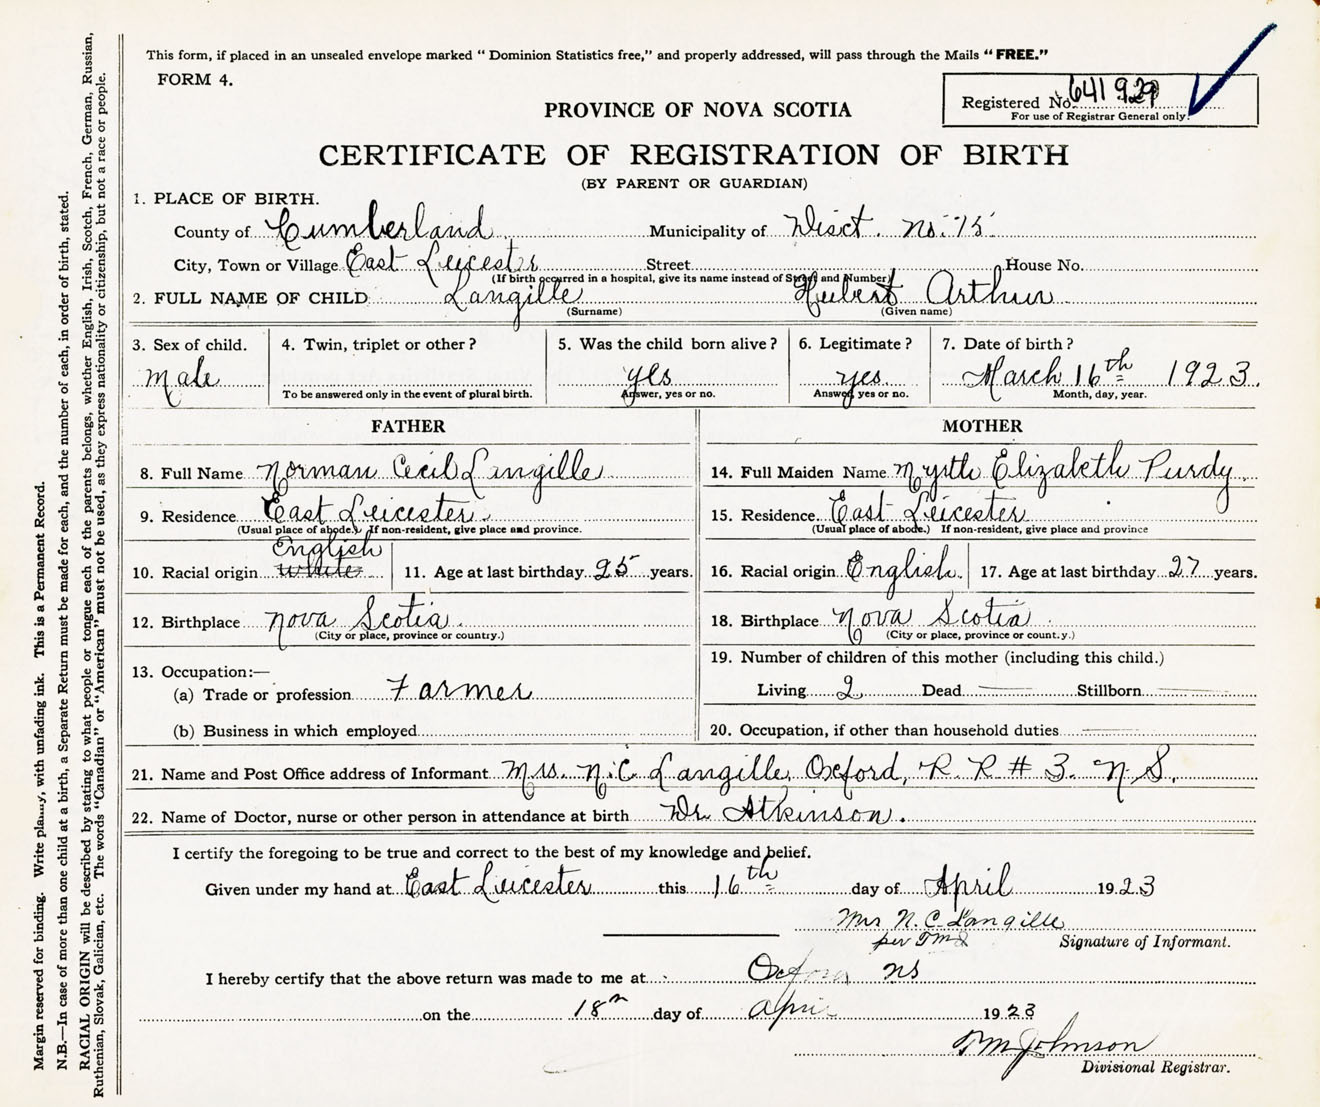 This form, if placed in an unsealed envelope marked “ Dominion Statistics free,” and properly addressed, will pass through the Mails “ FREE.”
FORM 4.
Registered No. 641 929
For use of Registrar General only.
PROVINCE OF NOVA SCOTIA
CERTIFICATE OF REGISTRATION OF BIRTH
(BY PARENT OR GUARDIAN)
1. PLACE OF BIRTH.
County of Cumberland Municipality of Disct. No. 15
City, Town or Village East Leicester Street House No.
(If birth occurred in a hospital, give its name instead of Street and Number)
2. FULL NAME OF CHILD Langille Hubert Arthur
(Surname) (Given name)
3. Sex of child. 4. Twin, triplet or other ? 5. Was the child born alive ? 6. Legitimate ? 7. Date of birth ?
Male yes yes. March 16th 1923.
To be answered only in the event of plural birth. Answer, yes or no. Answer, yes or no. Month, day, year.
FATHER MOTHER
8. Full Name Norman Cecil Langille 14. Full Maiden Name Myrtle Elizabeth Purdy
9. Residence East Leicester. 15. Residence East Leicester
(Usual place of abode.) If non-resident, give place and province. (Usual place of abode.) If non-resident, give place and province
English
10. Racial origin white 11. Age at last birthday 25 years. 16. Racial origin English. 17. Age at last birthday 27 years.
12. Birthplace Nova Scotia. 18. Birthplace Nova Scotia.
(City or place, province or country.) (City or place, province or count.y.)
13. Occupation:— 19. Number of children of this mother (including this child.)
(a) Trade or profession Farmer Living 2 Dead — Stillborn —
(b) Business in which employed 20. Occupation, if other than household duties —
21. Name and Post Office address of Informant Mrs. N.C Langille, Oxford, R R # 3. N S.
22. Name of Doctor, nurse or other person in attendance at birth Dr. Atkinson.
I certify the foregoing to be true and correct to the best of my knowledge and belief.
Given under my hand at East Leicester this 16th day of April 1923
Mrs N. C Langille
per TMJ Signature of Informant.
I hereby certify that the above return was made to me at Oxford NS
on the 18th day of April 1923
TM Johnson
Divisional Registrar.
Margin reserved for binding. Write plainly, with unfading ink. This is a Permanent Record.
N.B.—In case of more than one child at a birth, a Separate Return must be made for each, and the number of each, in order of birth, stated.
RACIAL ORIGIN will be described by stating to what people or tongue each of the parents belongs, whether English, Irish, Scotch, French, German, Russian,
Ruthenian, Slovak, Galician, etc. The words “Canadian” or “American” must not be used, as they express nationality or citizenship, but not a race or people.